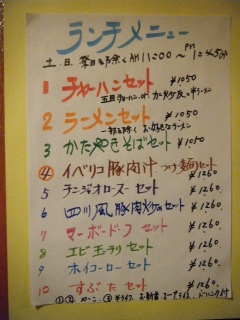 ランチメニュー
土.日.祭日を除く AM11:00 〜 PM 12:45
1 チャーハンセット ¥1050
五目チャーハン or カニ炒飯と半ラーメン
2 ラーメンセット ¥1050
お好きなラーメン
3 かたやきそばセット ¥1050
④ イベリコ豚肉汁つけ麺セット ¥1260
5 チンジオロースーセット ¥1260.
6 四川風豚肉炒めセット ¥1260.
7 マーボードーフセット ¥1260.
8 エビ玉チリセット ¥1260.
9 ホイコーローセット ¥1260.
10 すぶたセット ¥1260.